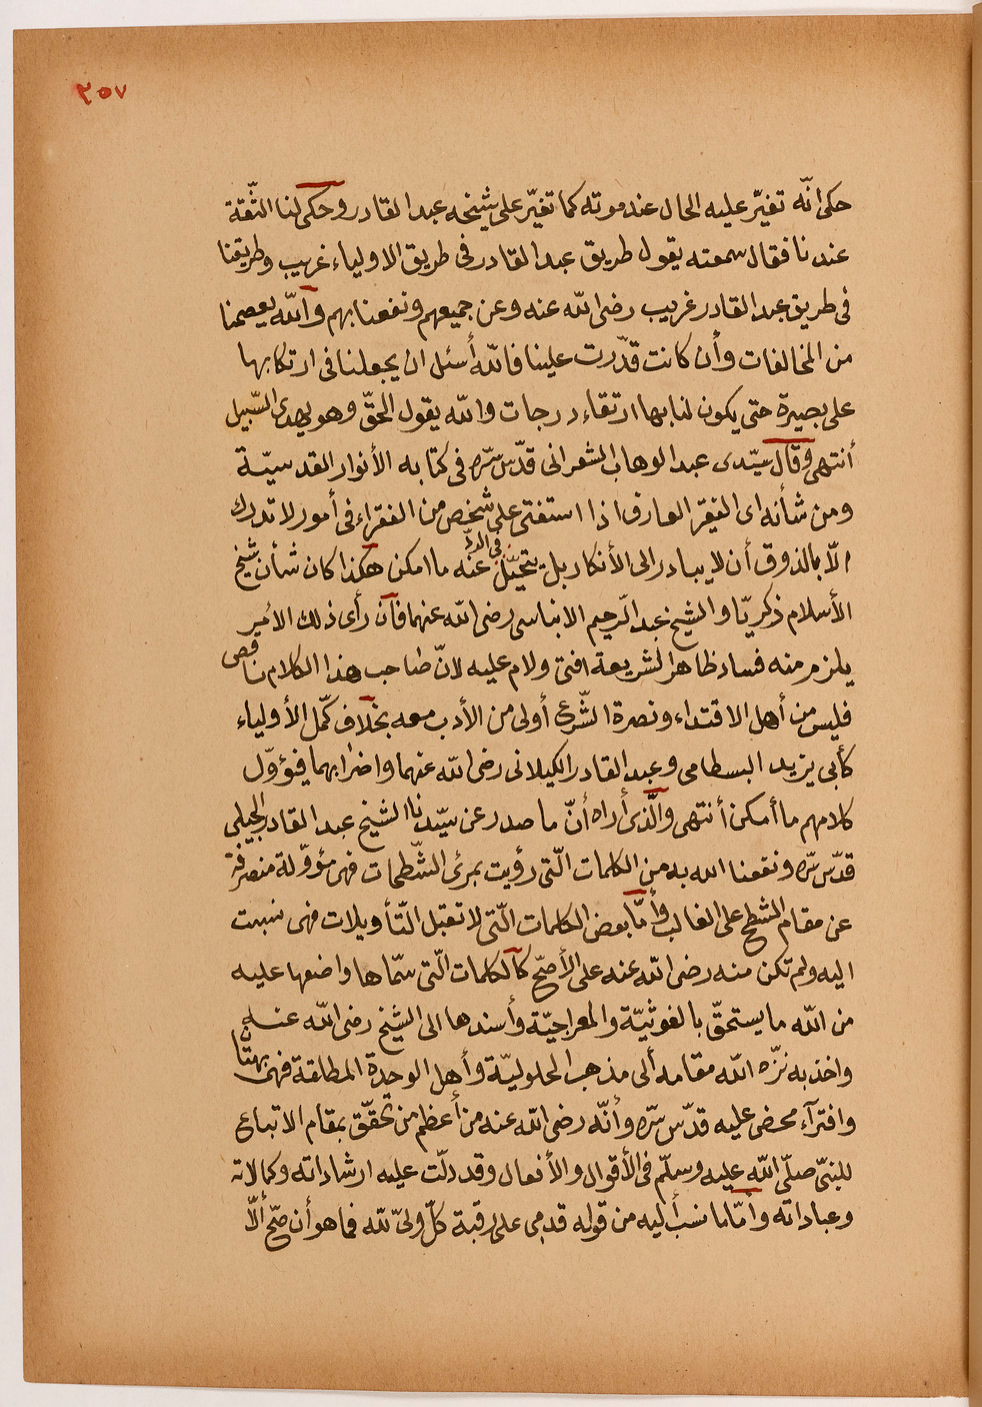 ٣٥٧
حكى انّه تغيّر عليه الحال عند موته كما تغيّر على شيخه عبد القادر وحكى لنا الثّقة
عندنا فقال سمعته يقول طريق عبد القادر فى طريق الاولياء غريب وطريقنا
فى طريق عبد القادر غريب رضى الله عنه وعن جميعهم ونفعنا بهم والله يعصمنا
من المخالفات وأن كانت قدّرت علينا فالله أسئل ان يجعلنا فى ارتكابها
على بصيرة حتى يكون لنا بها ارتقاء درجات والله يقول الحقّ وهو يهدى السّبيل
أنتهى وقال سيّدى عبد الوهاب الشعرانى قدّس سّره فى كتابه الأنوار القدسيّة
ومن شأنه اى الفقير العارف اذا استفتى على شخص من الفقراء فى أمور لا تدرك
الّا بالذوق أن لا يبادر الى الأنكار بل يتحيّل فى الردّ عنه ما امكن هكذا كان شأن شيخ
الأسلام ذكريّا والشيخ عبد الرّحيم الابناسى رضى الله عنهما فآن رأى ذلك الأمر
يلزم منه فساد ظاهر الشريعة افتى ولام عليه لانّ صاحب هذا الكلام ناقص
فليس من أهل الاقتداء ونصرة الشّرع أولى من الأدب معه بخلاف كمّل الأولياء
كأبى يزيد البسطامى وعبد القادر الكيلانى رضى الله عنهما واضرابهما فيؤوّل
كلامهم ما أمكن أنتهى والّذى أراه أنّ ما صدر عن سيّدنا الشيخ عبد القادر الجيلى
قدّس سّره ونفعنا الله به من الكلمات الّتى رؤيت بمرئ الشّطحات فهى مؤوّلة منصرفة
عن مقام الشطح على الغالب وأمّا بعض الكلمات الّتى لا تقبل التّأويلات فهى نسبت
اليه ولم تكن منه رضى الله عنه على الأصحّ كآلكلمات الّتى سمّاها واضعها عليه
من الله ما يستحقّ بالغوثيّة والمعراجيّة وأسندها الى الشيخ رضى الله عنه
واخذ به نزّه الله مقامه ألى مذهب الحلوليّة وأهل الوحدة المطلقة فهى بهتان
وافترآء محض عليه قدّس سّره وأنّه رضى الله عنه من أعظم من تحقّق بمقام الاتباع
للنبىّ صلّى الله عليه وسلّم فى الأقوال والأفعال وقد دلّت عليه ارشاداته وكمالاته
وعباداته وأمّا ما نسب أليه من قوله قدمى على رقبة كلّ ولىّ لله فما هو أن صّح ألّا